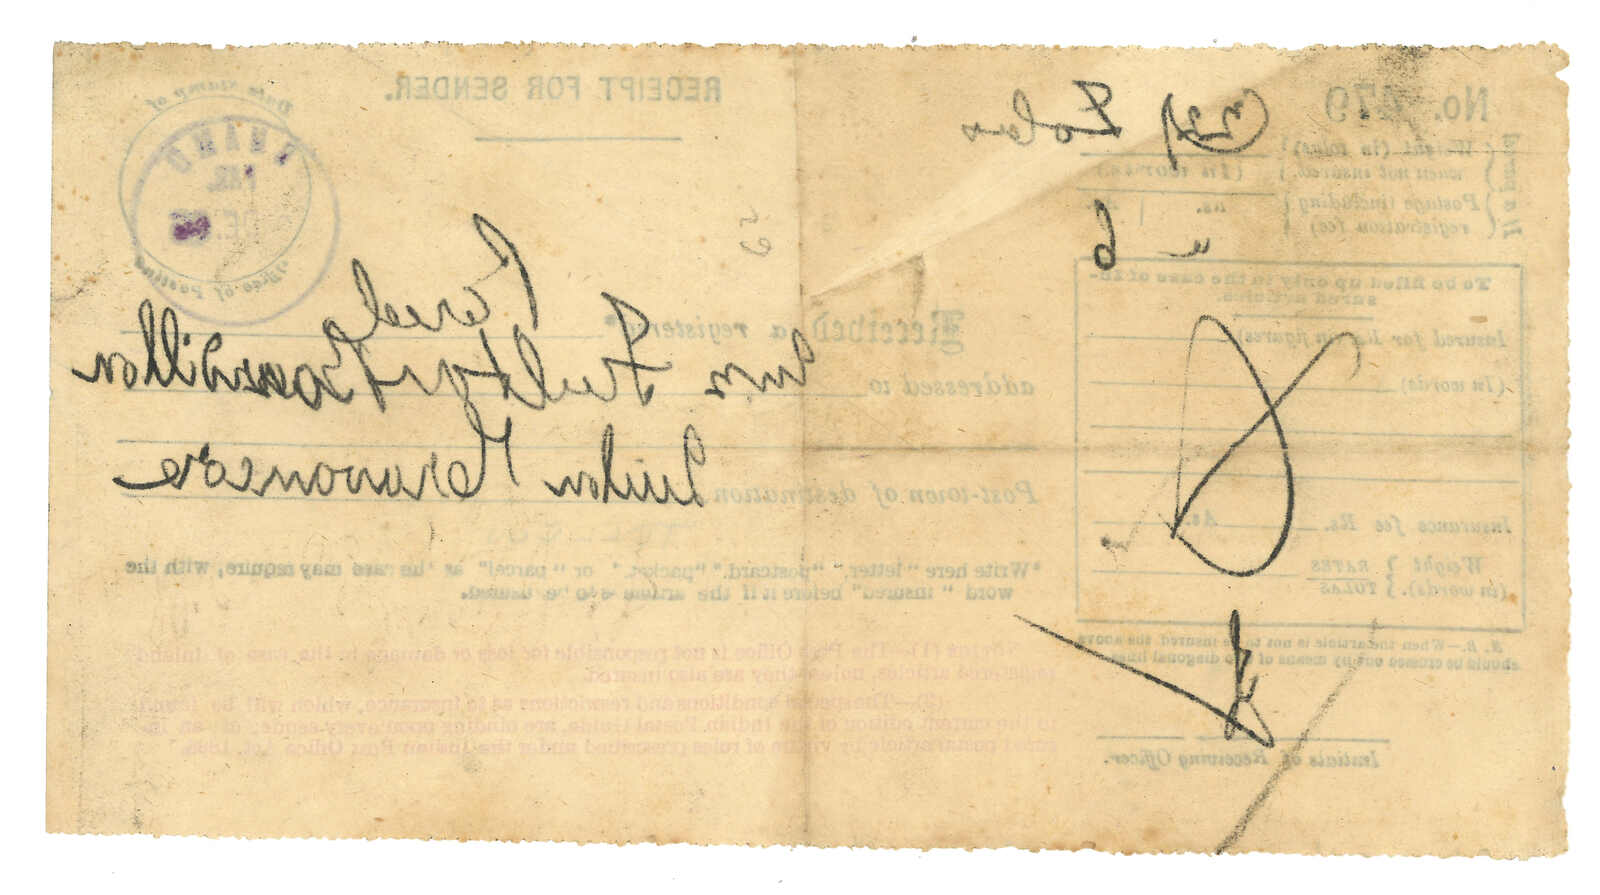 No.
Weight (in tolas)
when not insured.
(In words)
Tolas
Postage (including
registration fee)
Rs. As.
6
To be filled up only in the case of in-
sured articles.
Insured for Rs. (in figures)
(In words)
Insurance fee Rs. As.
Weight
(in words).
RATES
TOLAS
N. B.—When the article is not to be insured, the above
should be crossed out by means of two diagonal lines.
Initials of Receiving Officer.
RECEIPT FOR SENDER.
Date Stamp of
Office of Posting
Received a registered*
Parcel
addressed to
Post-town of destination
Quilon Travancore
*Write here "letter," "postcard," "packet," or "parcel" as the case may require, with the
word "insured" before it if the article is to be insured.
NOTICE (1).—The Post Office is not responsible for loss or damage in the case of inland
registered articles, unless they are also insured.
(2).—The special conditions and restrictions as to insurance, which will be found
in the current edition of the Indian Postal Guide, are binding upon every sender of an in-
sured postal article by virtue of rules prescribed under the Indian Post Office Act, 1898.